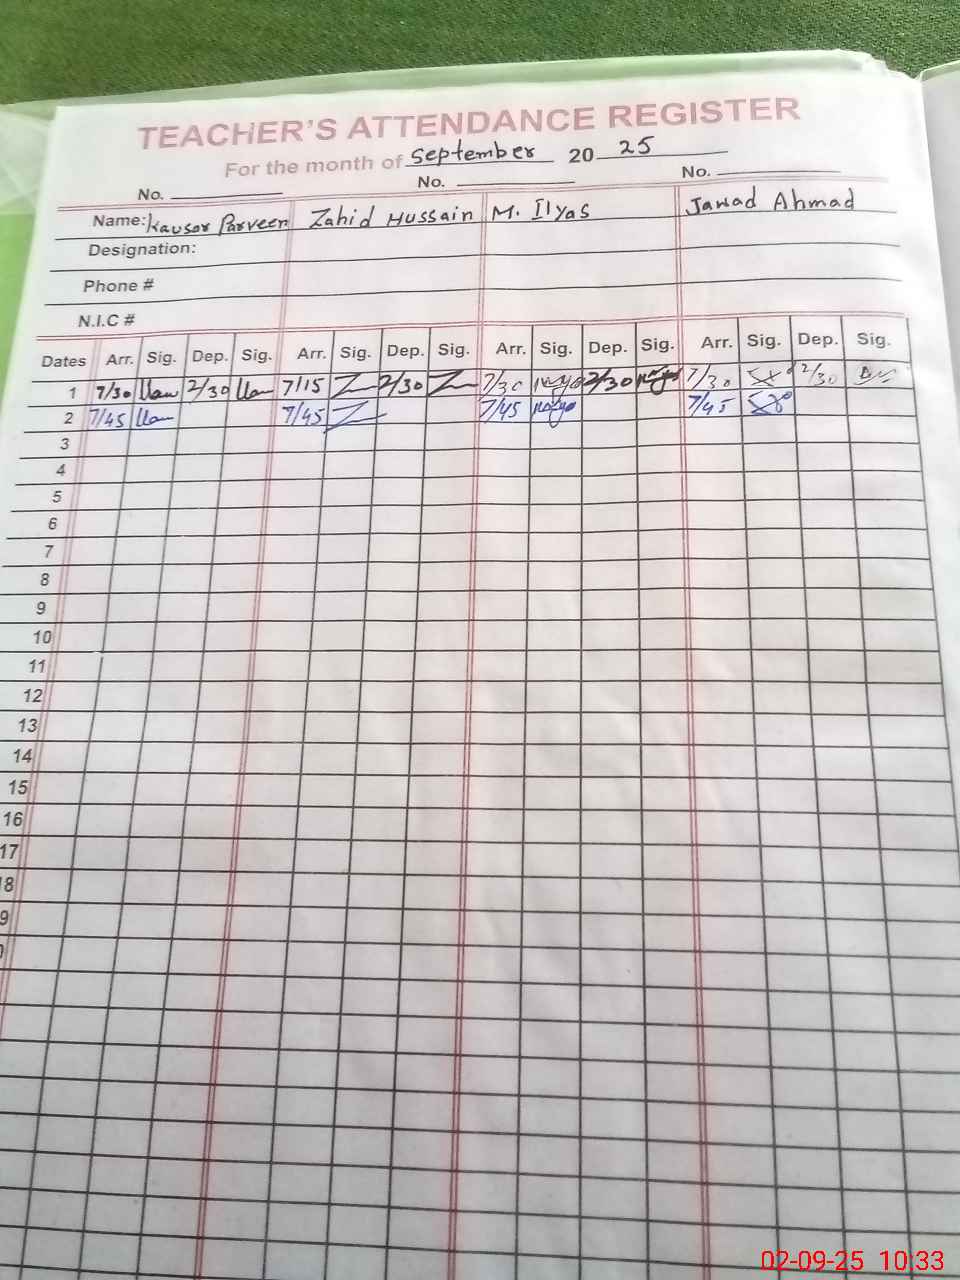 TEACHER'S ATTENDANCE REGISTER
For the month of September 20 25
No. No. No.
Name: Kausar Parveen Zahid Hussain M. Ilyas Jawad Ahmad
Designation:
Phone #
N.I.C #
Dates Arr. Sig. Dep. Sig. Arr. Sig. Dep. Sig. Arr. Sig. Dep. Sig. Arr. Sig. Dep. Sig.
1 7/30 2/30 7/15 2/30 7/30 2/30 7/30 2/30
2 7/45 7/45 7/45 7/45
3
4
5
6
7
8
9
10
11
12
13
14
15
16
17
18
9
02-09-25 10:33